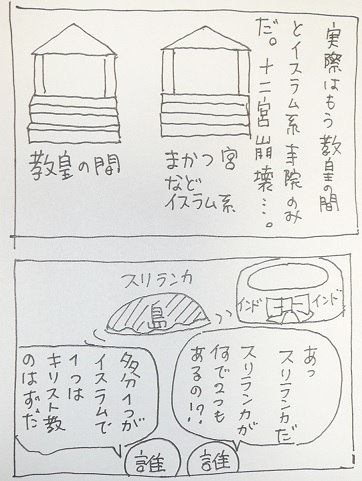 実際はもう教皇の間
とイスラム系寺院のみ
だ。十二宮崩壊…。
まかつ宮
など
イスラム系
教皇の間
スリランカ
島
インド
インド
あっ
スリランカだ
スリランカが
何で2つも
あるの!?
多分1つが
イスラムで
1つは
キリスト教
のはずだ
誰
誰